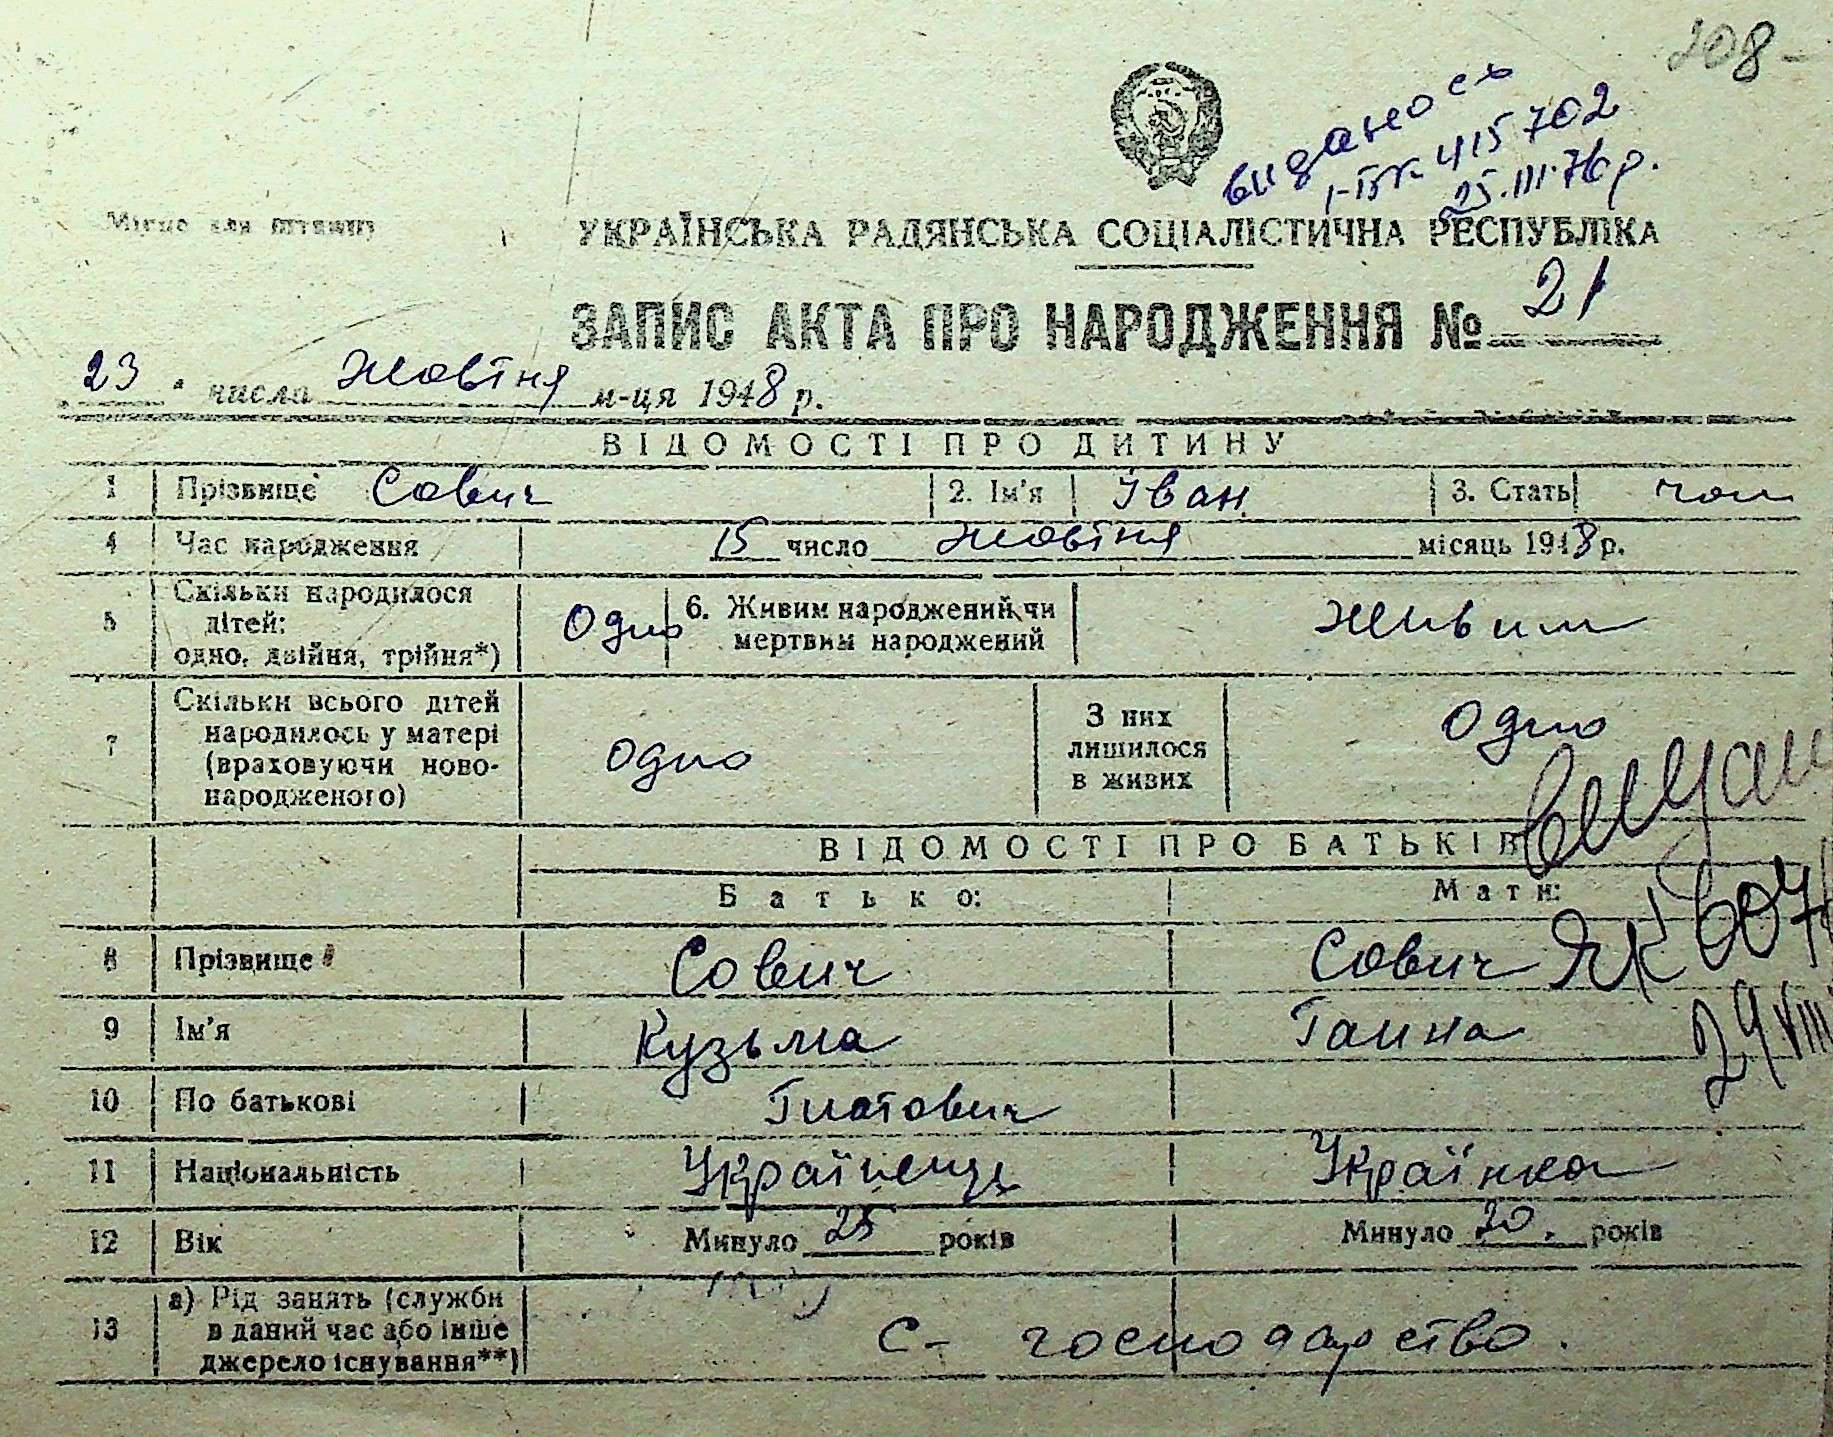 208-
видано сх
І-БК 415702
25.III.76 р.
Місце для штампу
УКРАЇНСЬКА РАДЯНСЬКА СОЦІАЛІСТИЧНА РЕСПУБЛІКА
ЗАПИС АКТА ПРО НАРОДЖЕННЯ № 21
23 числа жовтня м-ця 1948 р.
ВІДОМОСТІ ПРО ДИТИНУ
1 Прізвище Сович 2. Ім'я Іван 3. Стать чол
4 Час народження 15 число жовтня місяць 1948 р.
5 Скільки народилося дітей: одно, двійня, трійня*) Одно 6. Живим народжений, чи мертвим народжений живим
7 Скільки всього дітей народилось у матері (враховуючи новонародженого) одно З них лишилося в живих одно
ВІДОМОСТІ ПРО БАТЬКІВ
Батько: Мати:
8 Прізвище Сович Сович
ЯК
9 Ім'я Кузьма Ганна
29 VIII
10 По батькові Гнатович
11 Національність Українець Українка
12 Вік Минуло 25 років Минуло 20. років
13 а) Рід занять (служби в даний час або інше джерело існування**) С- господарство.